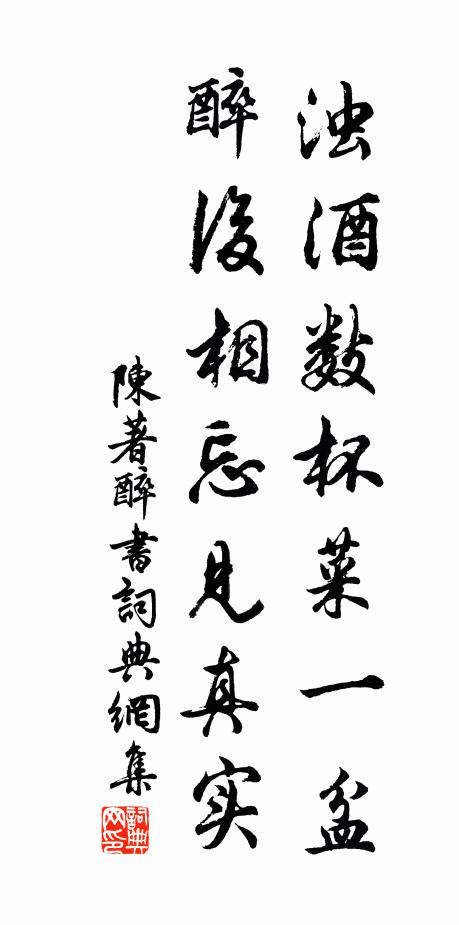 浊酒数杯菜一盆
醉後相忘見真实
陳著醉書詞典網集
詞典网印